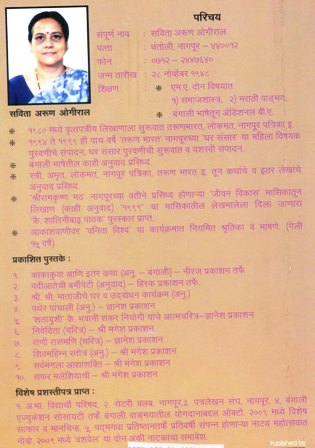 परिचय
संपूर्ण नाव : सविता अरूण ओगीराल
पत्ता : धंतोली, नागपूर – ४४००१२
फोन : ०७१२ – २४४७६४०
जन्म तारीख : २८ नोव्हेंबर १९४८
शिक्षण : * एम.ए. दोन विषयात
१) समाजशास्त्र, २) मराठी वाङ्मय,
* बंगाली भाषेतून अ‍ॅडिशनल बी.ए.
सविता अरूण ओगीराल
* १९८० मध्ये वृत्तपत्रीय लिखाणाला सुरूवात तरूणभारत, लोकमत, नागपूर पत्रिका इ.
* १९९४ ते १९९९ ही पाच वर्ष 'तरूण भारत' नागपूरच्या 'घर संसार' या महिला विषयक
पुरवणीचे संपादन, घर संसार पुरवणीची सुरूवात व यशस्वी संपादन.
* बंगाली भाषेतील काही अनुवाद प्रसिध्द.
* स्त्री, अमृत, लोकमत, नागपूर पत्रिका, तरूण भारत इ. तून कथांचे व इतर लेखांचे
अनुवाद प्रसिध्द.
* 'श्रीरामकृष्ण मठ' नागपूरच्या वतीने प्रसिध्द होणाऱ्या 'जीवन विकास' मासिकातून
लिखाण (काही अनुवाद) '१९९९' चा मासिकातील लेखमालेला दिला जाणारा
'कै. शालिनीबाई पाठक' पुरस्कार प्राप्त.
* आकाशवाणीवर 'वनिता विश्व' या कार्यक्रमात नियमित श्रृतिका व भाषणे. (गेली
१५ वर्षे)
प्रकाशित पुस्तके :
१. काकाकुवा आणि इतर कथा (अनु. – बंगाली) – नीरज प्रकाशन तर्फे
२. पदीआतंची बर्मीपेटी (अनुवाद) – हिरक प्रकाशन तर्फे.
३. श्री. श्री. माताजीचे घर व उद्‌बोधन कार्यक्रम (अनु.)
४. पथेर पांचाली (अनु.) – ज्ञानेश प्रकाशन
५. 'शतायुषी' कै. भवानी शंकर नियोगी यांचे आत्मचरित्र–ज्ञानेश प्रकाशन
६. निवेदिता (चरित्र) – श्री मंगेश प्रकाशन
७. राणी रासमणि (चरित्र) – ज्ञानेश प्रकाशन
८. शिवमहिम्न स्तोत्र (अनु.) – श्री मंगेश प्रकाशन
९. सर्वमंगला आद्याशक्ति – श्री मंगेश प्रकाशन
१०. सफर मलेशियाची – श्री मंगेश प्रकाशन.
विशेष प्रशस्तीपत्र प्राप्त :
१. अ.भा. विद्यार्थी परिषद, २. रोटरी क्लब, नागपूर,३. पत्रलेखन संघ, नागपूर, ४. बंगाली
एज्युकेशन सोसायटी तर्फे बंगाली वाङमयातील योगदानाबद्दल ऑक्टो. २००९ मध्ये विशेष
सत्कार व मानचिन्ह, ५. पद्मगंधा प्रतिष्ठानतर्फे प्रतिवर्षी संपन्न होणाऱ्या नाट्य महोत्सवात
नोव्हें. २००९ मध्ये 'वशवेल' या दोन अंकी नाटकाचा समावेश.
Published by